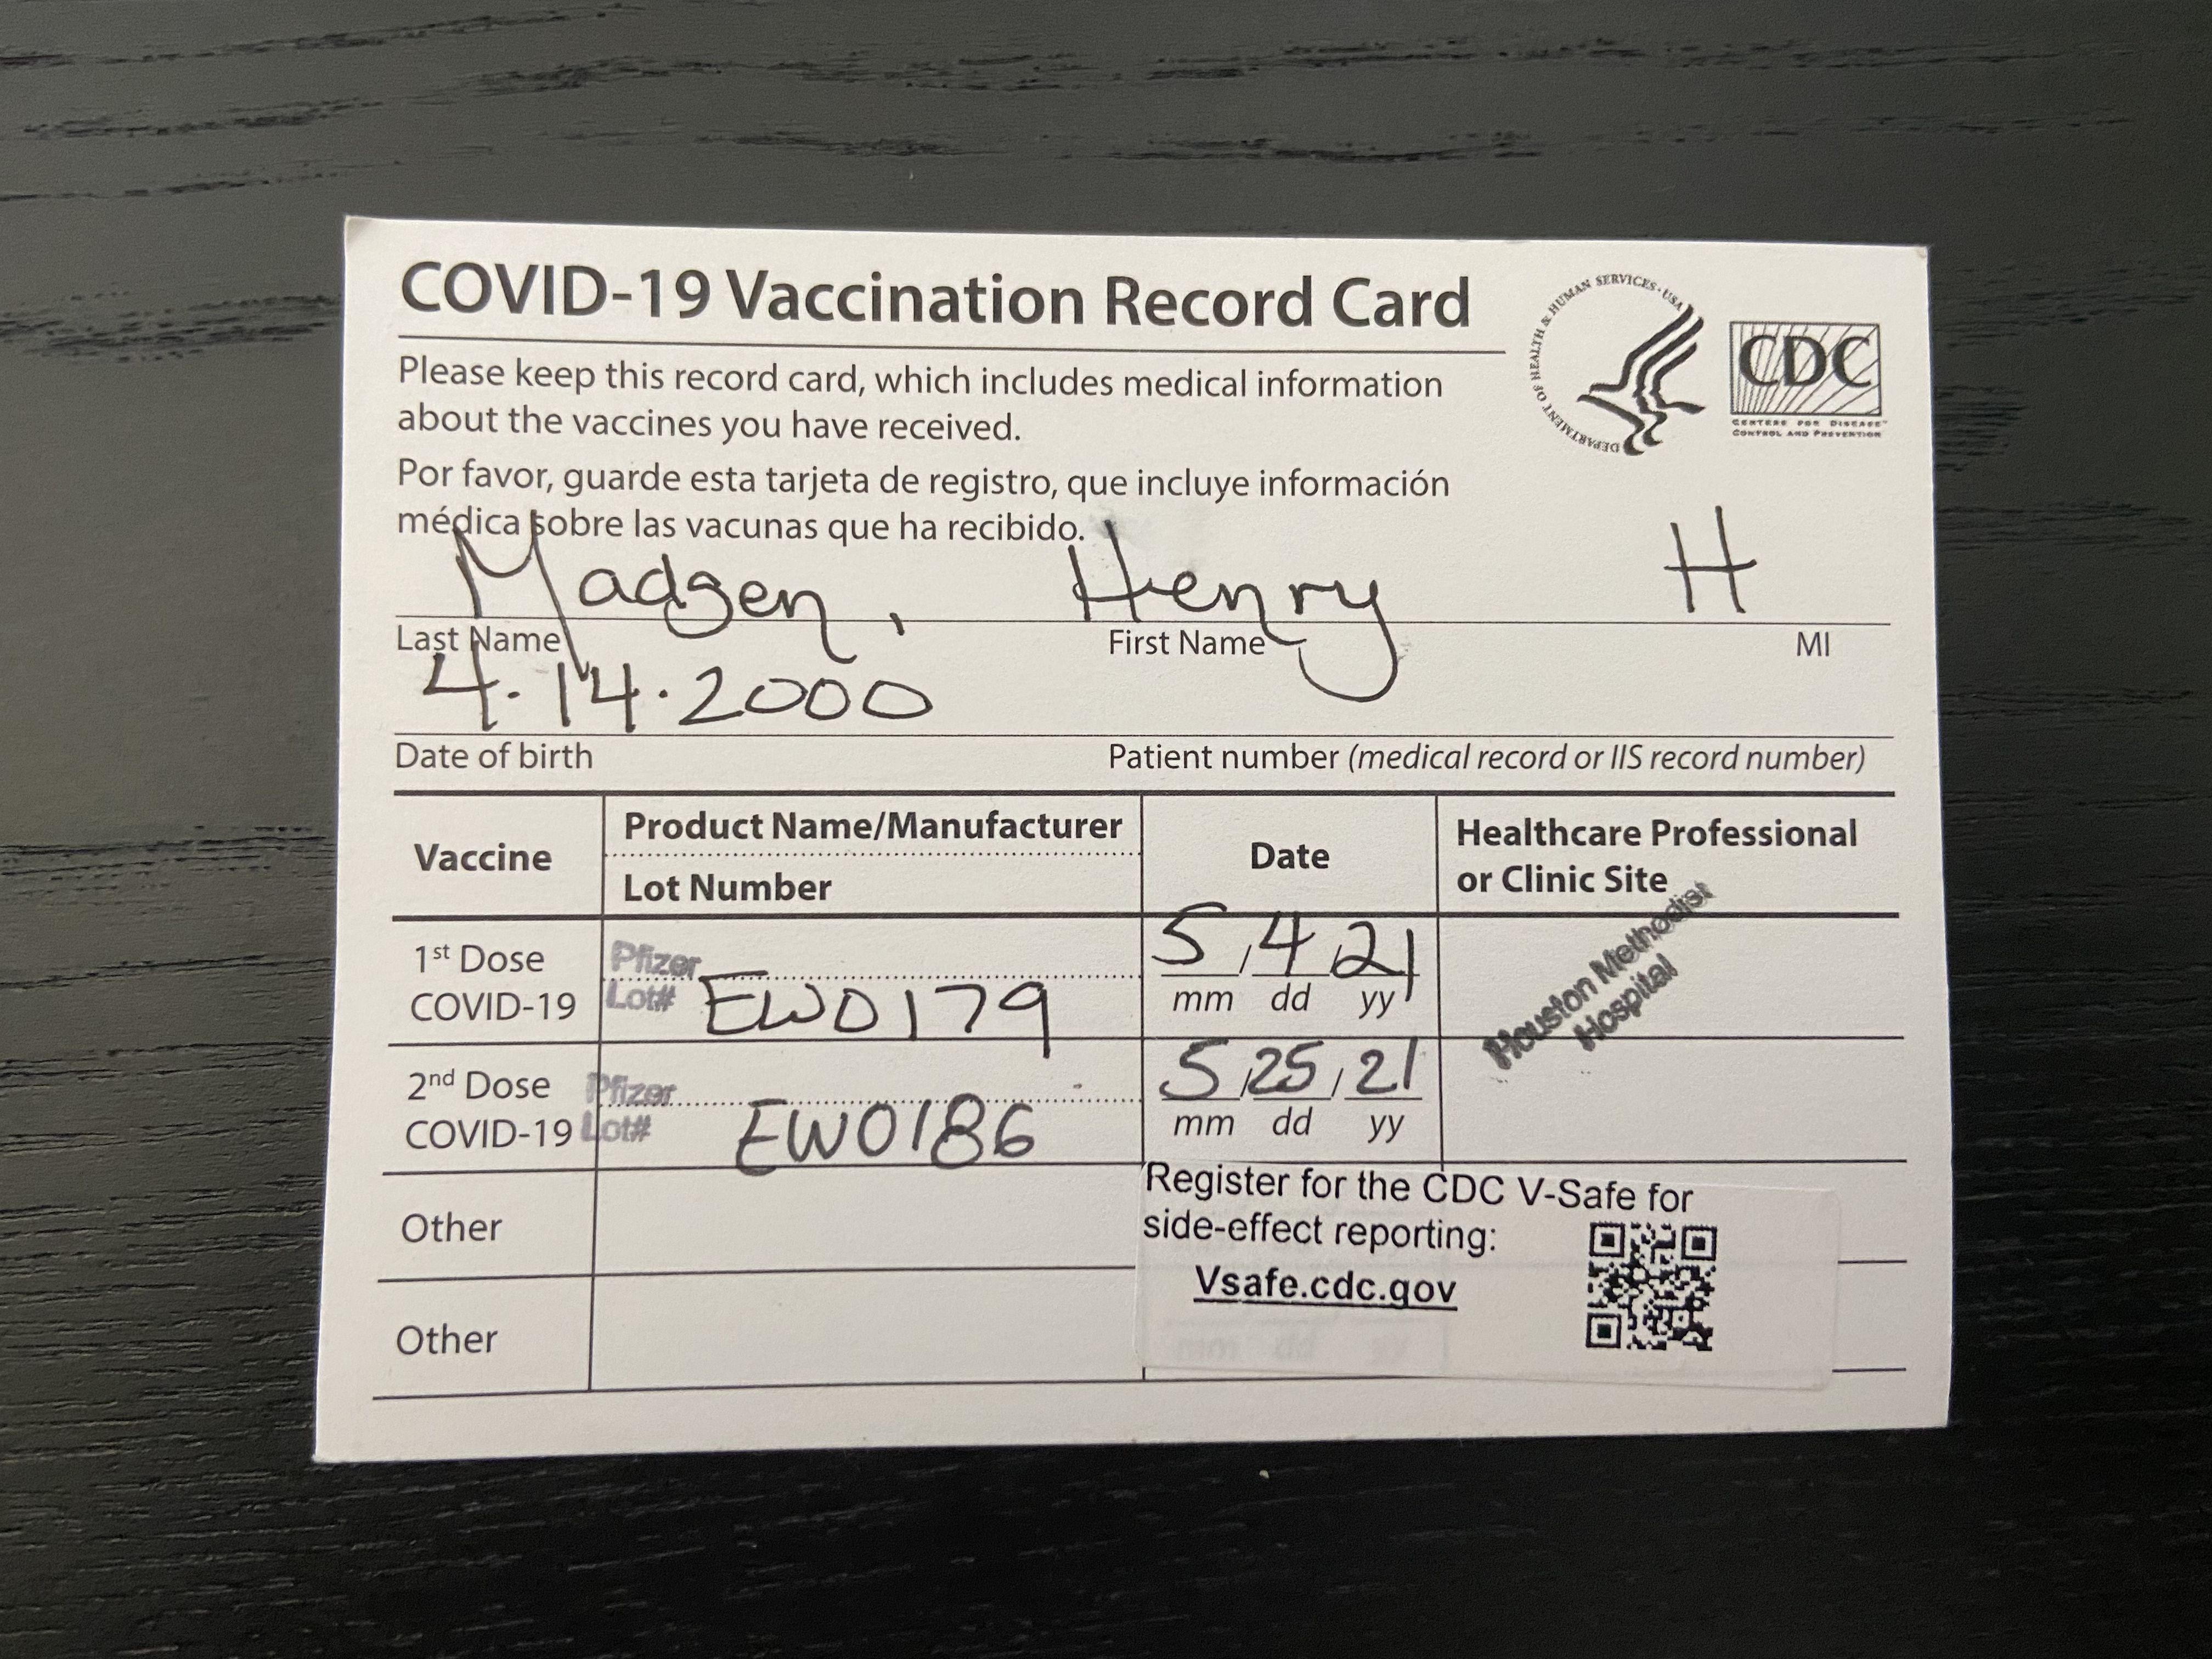 COVID-19 Vaccination Record Card
DEPARTMENT OF HEALTH & HUMAN SERVICES · USA
CDC
CENTERS FOR DISEASE™
CONTROL AND PREVENTION
Please keep this record card, which includes medical information
about the vaccines you have received.
Por favor, guarde esta tarjeta de registro, que incluye información
médica sobre las vacunas que ha recibido.
Madsen, Henry H
Last Name First Name MI
4.14.2000
Date of birth Patient number (medical record or IIS record number)
Vaccine
Product Name/Manufacturer
Lot Number
Date
Healthcare Professional
or Clinic Site
1st Dose
COVID-19
Pfizer
Lot# EW0179
5/4/21
mm dd yy
Houston Methodist
Hospital
2nd Dose
COVID-19
Pfizer
Lot# EW0186
5/25/21
mm dd yy
Other
Register for the CDC V-Safe for
side-effect reporting:
Vsafe.cdc.gov
Other
mm dd yy